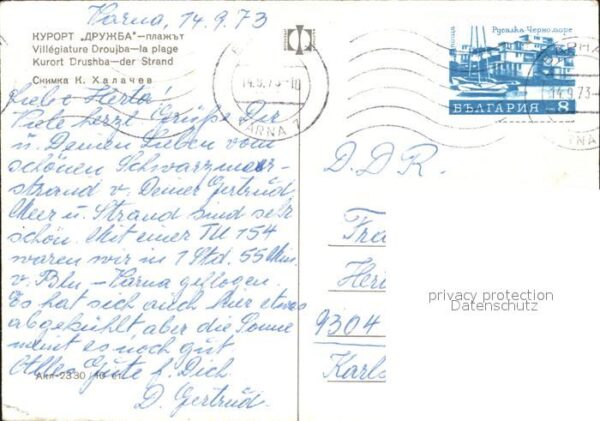 Varna, 14.9.73
КУРОРТ „ДРУЖБА"—плажът
Villégiature Droujba—la plage
Kurort Drushba—der Strand
Снимка К. Халачев
Liebe Herta!
Viele herzl. Grüße Dir
u. Deinen Lieben vom
schönen Schwarzmeer-
strand v. Deiner Gertrud.
Meer u. Strand sind sehr
schön. Mit einer TU 154
waren wir in 1 Std. 55 Min.
v. Bln – Varna geflogen.
Es hat sich auch hier etwas
abgekühlt aber die Sonne
meint es noch gut
Alles Gute f. Dich
D. Gertrud.
Акл-2330
14.9.73-18
VARNA 1
Русалка Черноморе
поща
БЪЛГАРИЯ 8
14.9.73
D.D.R.
Fra
Her
9304
Karl
privacy protection
Datenschutz